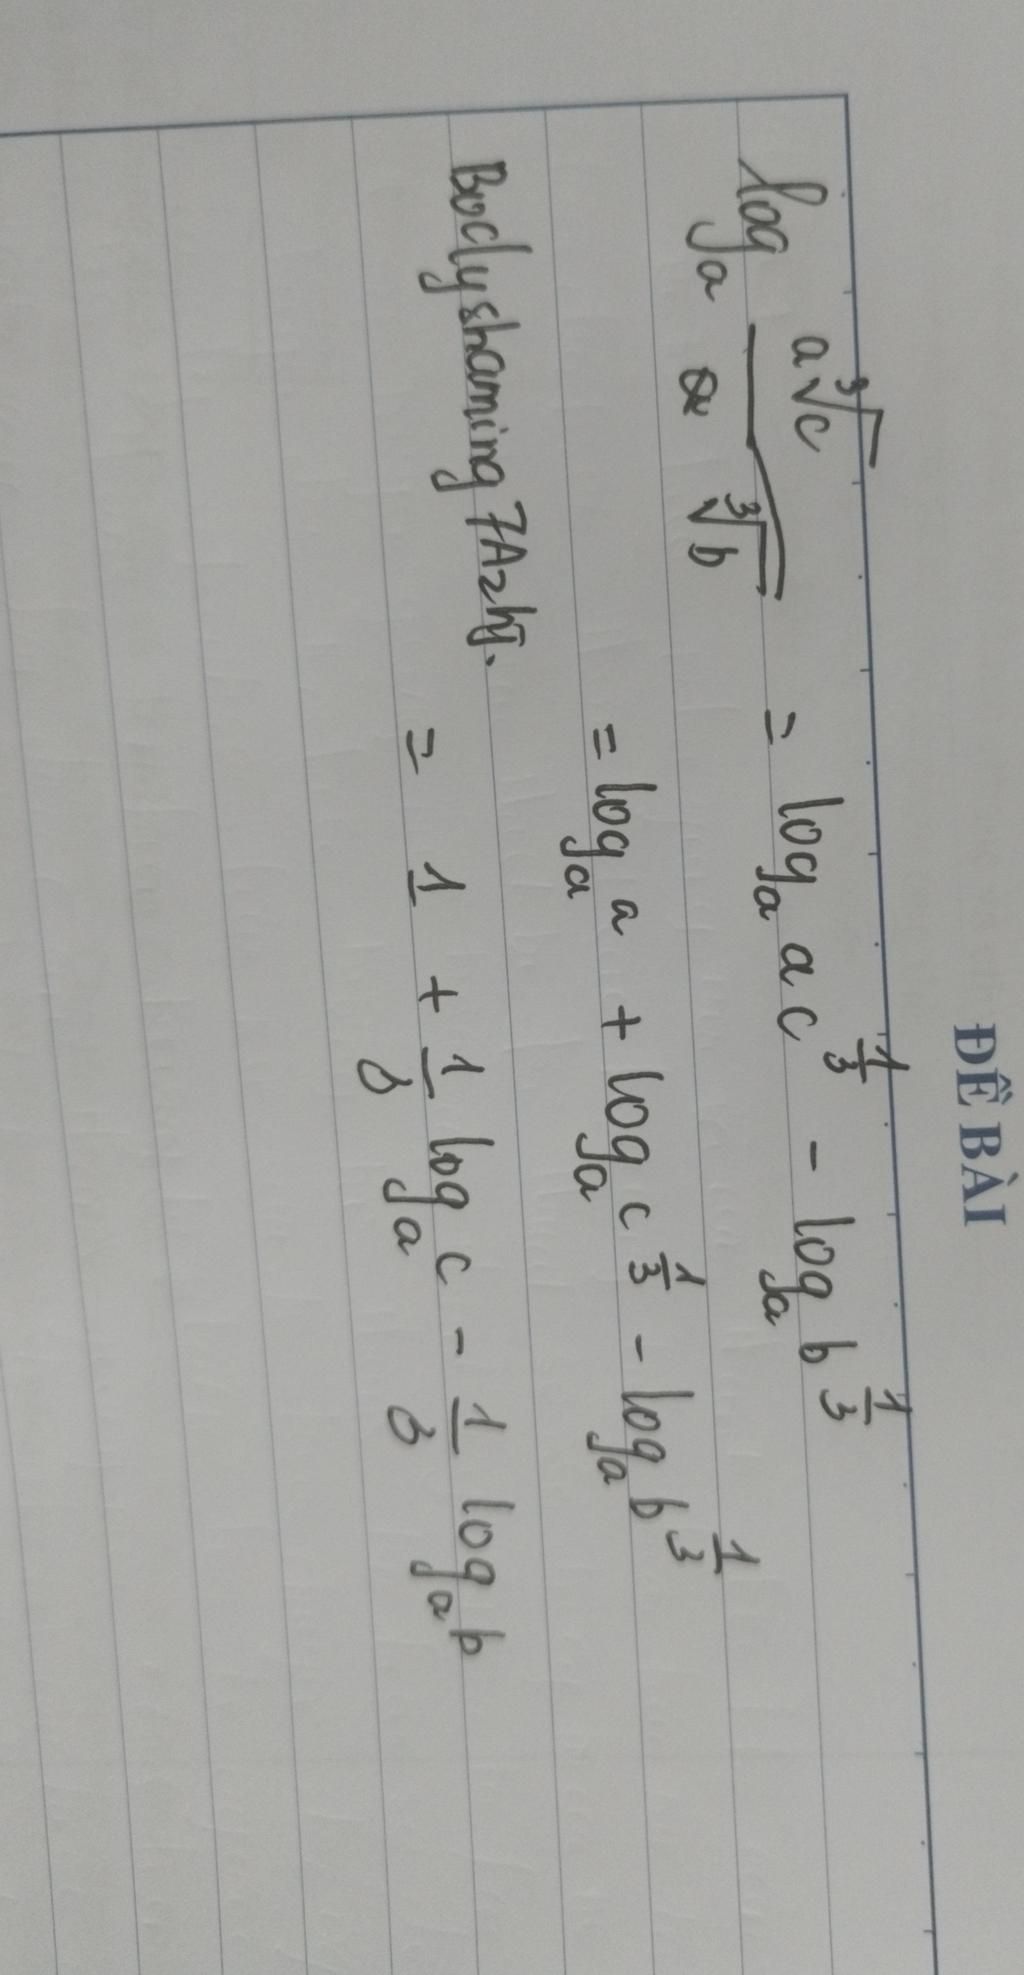 ĐỀ BÀI
log_a (a∛c / ∛b) = log_a a c^(1/3) - log_a b^(1/3)
= log_a a + log_a c^(1/3) - log_a b^(1/3)
Bodyshaming
= 1 + 1/3 log_a c - 1/3 log_a b